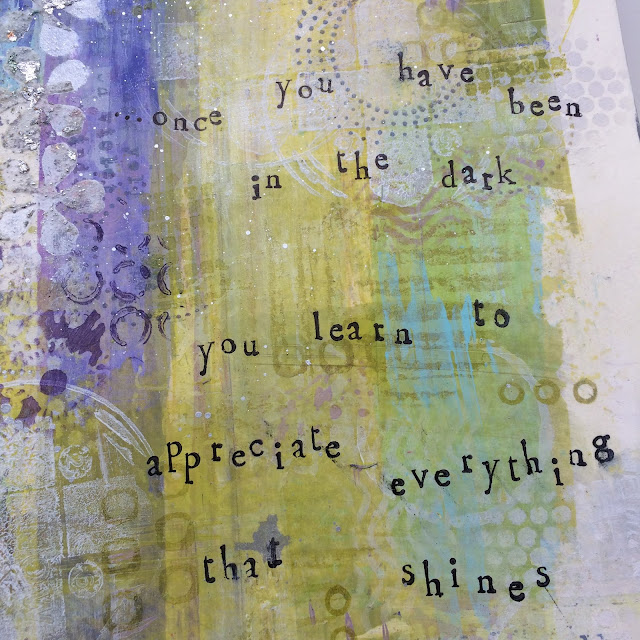 ....once you have been
in the dark
you learn to
appreciate everything
that shines